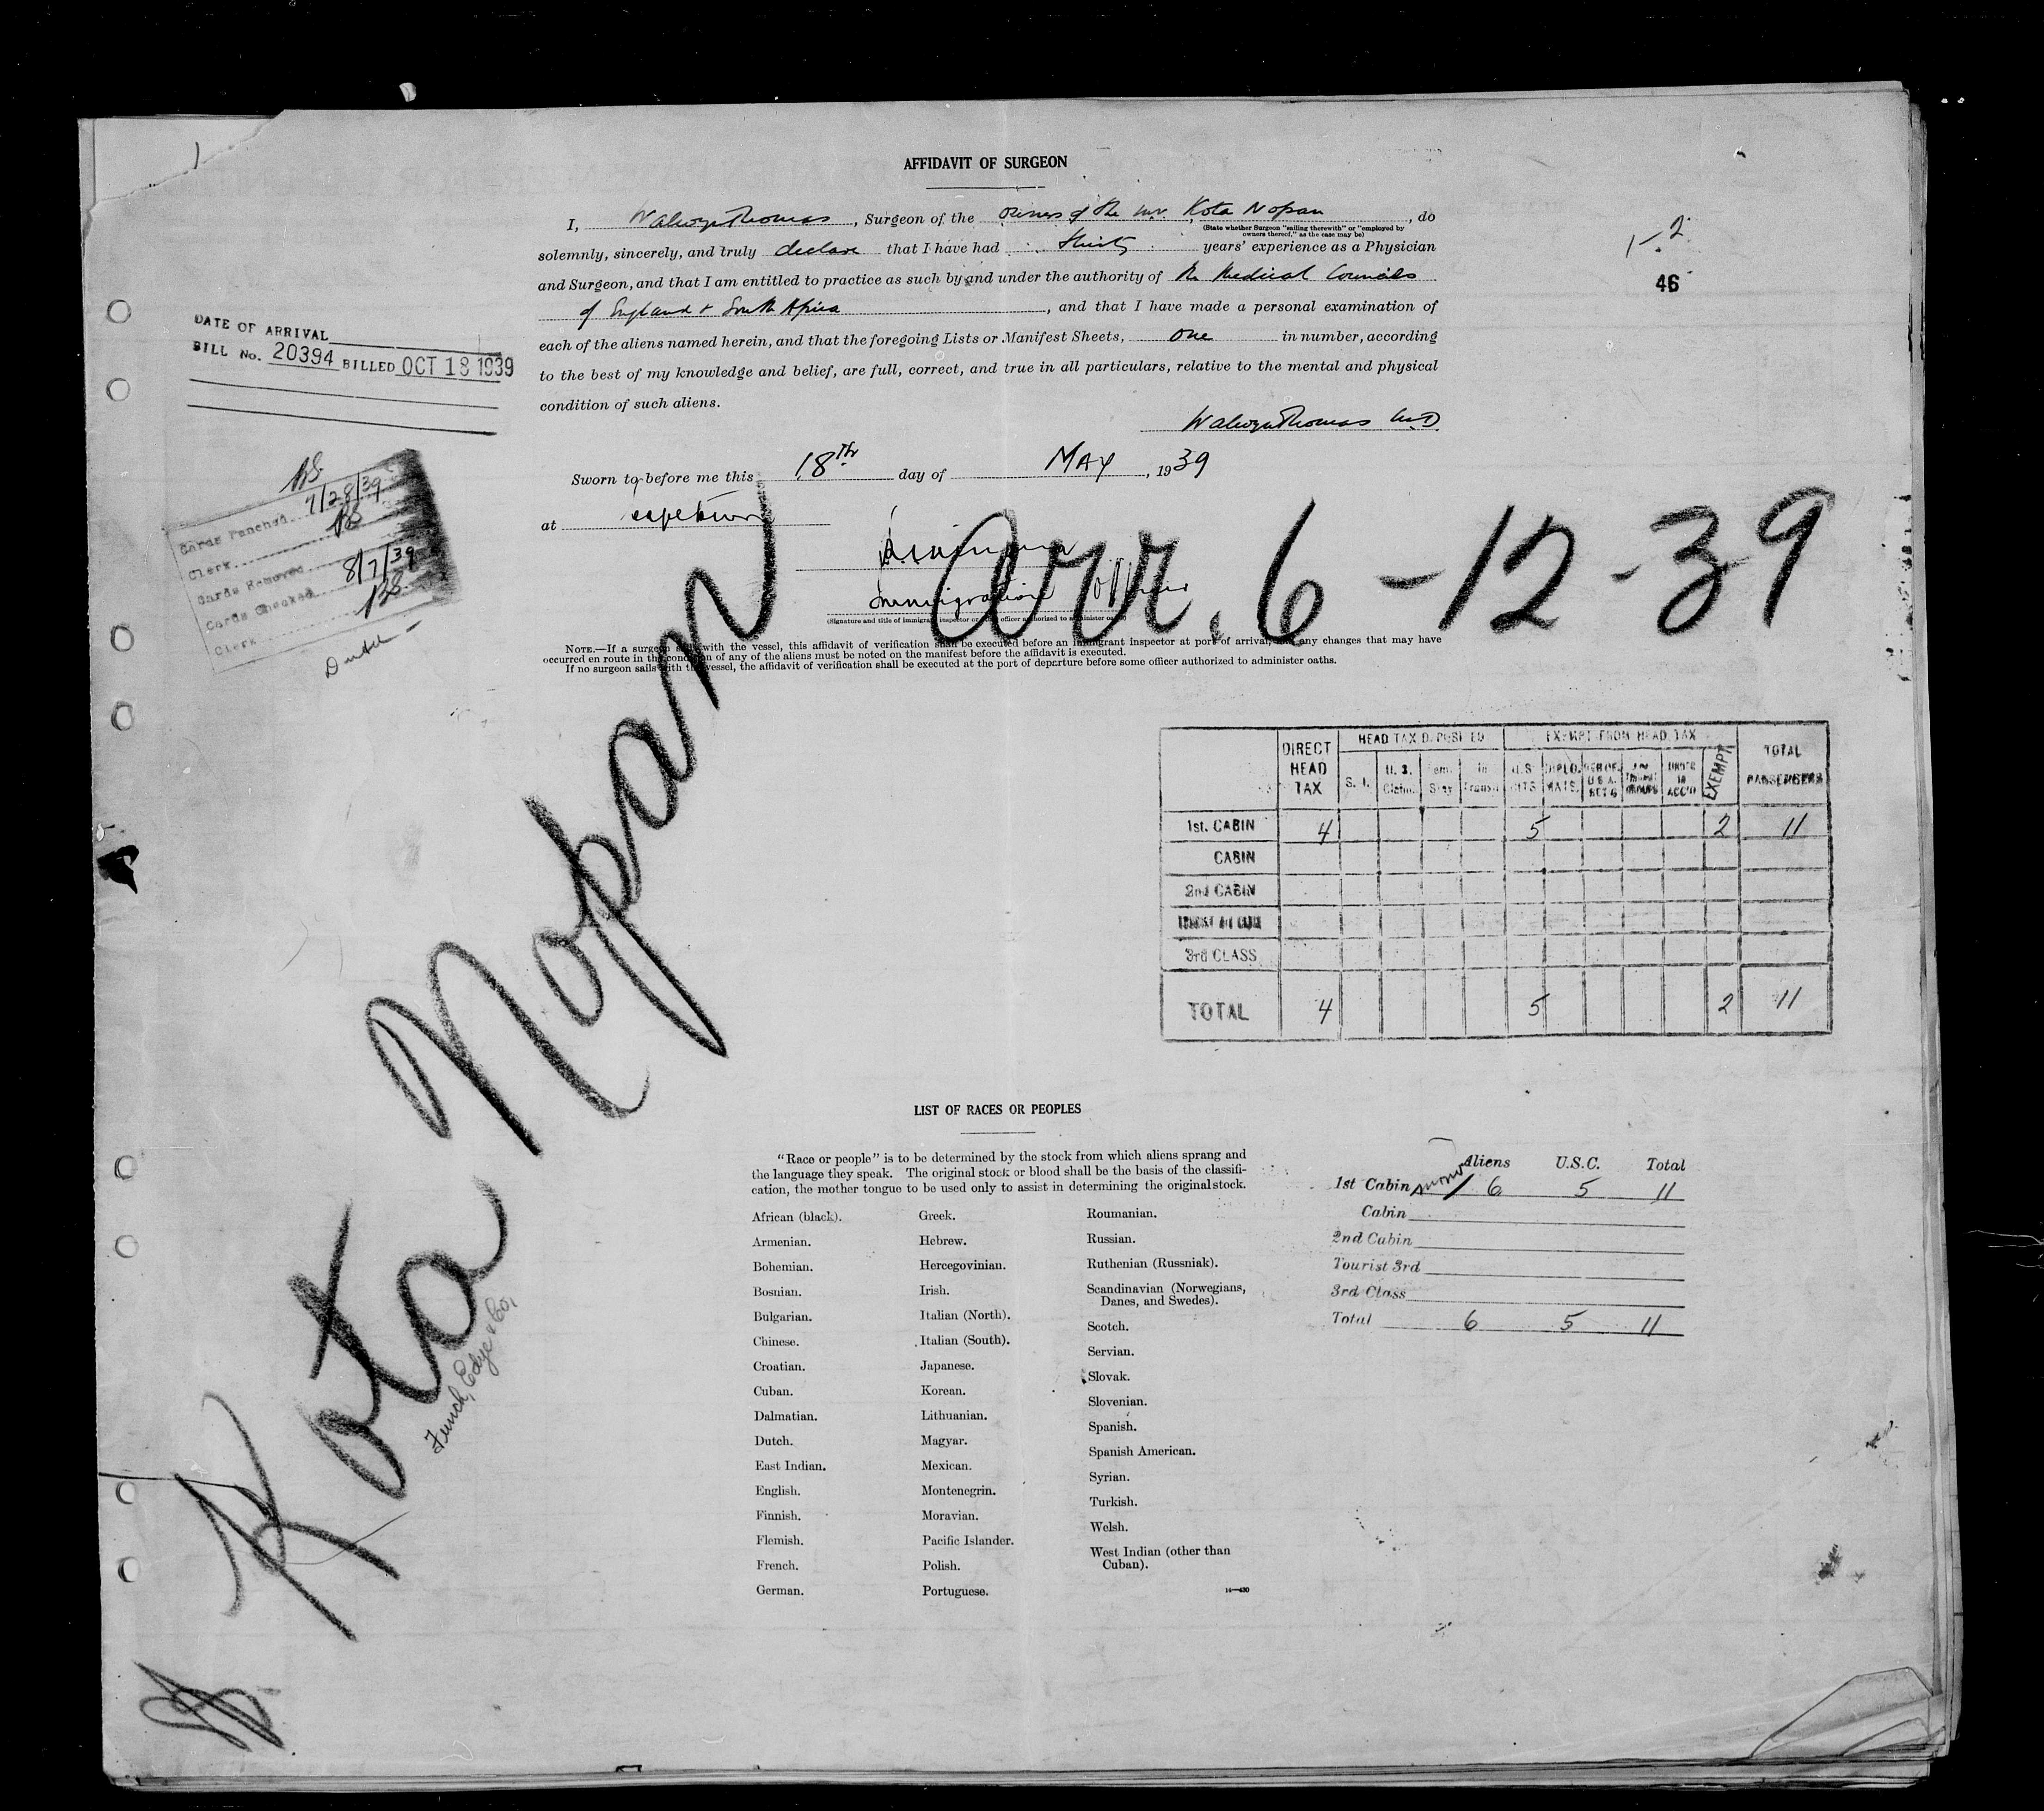 AFFIDAVIT OF SURGEON
I, Walwyn Thomas, Surgeon of the owners of the m.v. Kota Nopan, do
(State whether Surgeon "sailing therewith" or "employed by
owners thereof," as the case may be)
solemnly, sincerely, and truly declare that I have had thirty years' experience as a Physician
and Surgeon, and that I am entitled to practice as such by and under the authority of the Medical Councils
of England & South Africa, and that I have made a personal examination of
each of the aliens named herein, and that the foregoing Lists or Manifest Sheets, one in number, according
to the best of my knowledge and belief, are full, correct, and true in all particulars, relative to the mental and physical
condition of such aliens.
Walwyn Thomas M.D
Sworn to before me this 18th day of MAY, 1939
at Capetown
Immigration Officer
(Signature and title of immigrant inspector or officer authorized to administer
NOTE.—If a surgeon sails with the vessel, this affidavit of verification shall be executed before an immigrant inspector at port of arrival, and any changes that may have
occurred en route in the condition of any of the aliens must be noted on the manifest before the affidavit is executed.
If no surgeon sails with the vessel, the affidavit of verification shall be executed at the port of departure before some officer authorized to administer oaths.
46
DATE OF ARRIVAL
BILL No. 20394 BILLED OCT 18 1939
Cards Punched 7/28/39
Clerk
Cards Removed
Cards Checked 8/7/39
Clerk
Dutch
Arr. 6-12-39
Kota Nopan
Funch, Edye & Co.,
DIRECT HEAD TAX
HEAD TAX DEPOSITED
EXEMPT FROM HEAD TAX
TOTAL PASSENGERS
S. I. U. S. Claim. Tem. Stay In Transit U.S. DIPLOMATS. UNDER 16 ACC'D EXEMPT
1st. CABIN 4 5 2 11
CABIN
2nd CABIN
3rd CLASS
TOTAL 4 5 2 11
LIST OF RACES OR PEOPLES
"Race or people" is to be determined by the stock from which aliens sprang and
the language they speak. The original stock or blood shall be the basis of the classifi-
cation, the mother tongue to be used only to assist in determining the original stock.
African (black).
Armenian.
Bohemian.
Bosnian.
Bulgarian.
Chinese.
Croatian.
Cuban.
Dalmatian.
Dutch.
East Indian.
English.
Finnish.
Flemish.
French.
German.
Greek.
Hebrew.
Hercegovinian.
Irish.
Italian (North).
Italian (South).
Japanese.
Korean.
Lithuanian.
Magyar.
Mexican.
Montenegrin.
Moravian.
Pacific Islander.
Polish.
Portuguese.
Roumanian.
Russian.
Ruthenian (Russniak).
Scandinavian (Norwegians,
Danes, and Swedes).
Scotch.
Servian.
Slovak.
Slovenian.
Spanish.
Spanish American.
Syrian.
Turkish.
Welsh.
West Indian (other than
Cuban).
Aliens U.S.C. Total
1st Cabin 6 5 11
Cabin
2nd Cabin
Tourist 3rd
3rd Class
Total 6 5 11